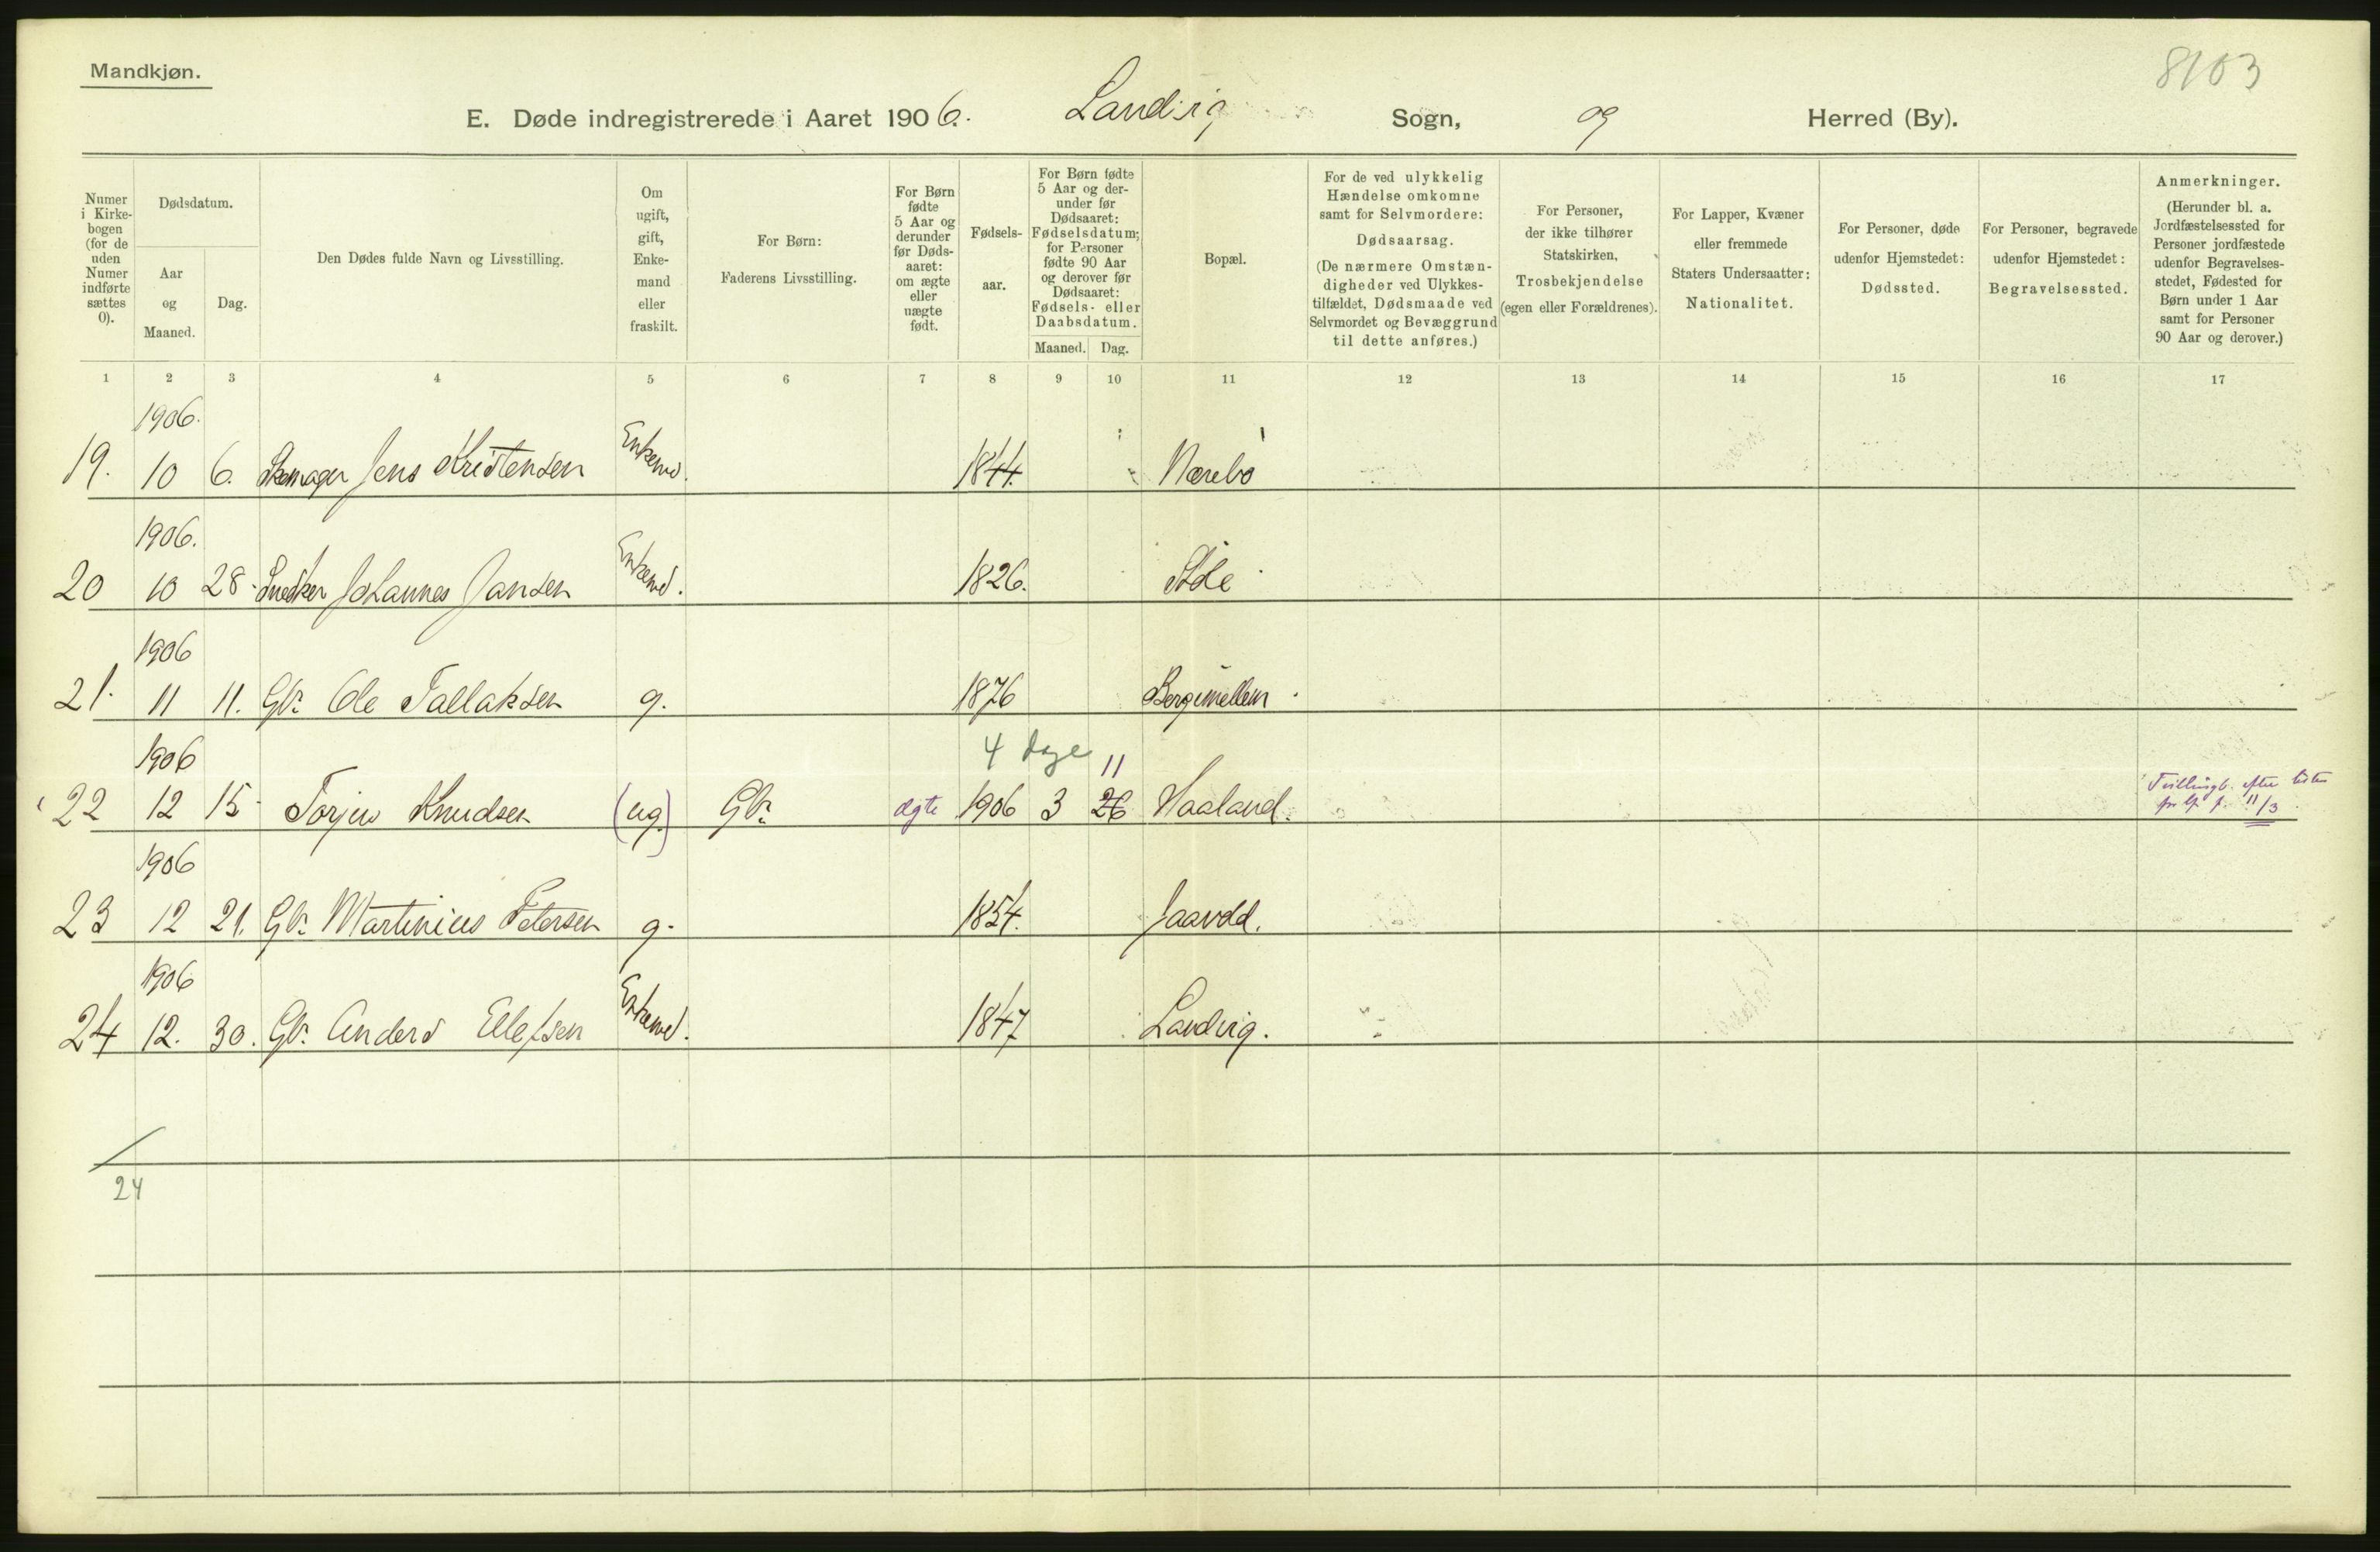 Mandkjøn.
8103
E. Døde indregistrerede i Aaret 1906. Landvig Sogn, og Herred (By).
Numer i Kirkebogen (for de uden Numer indførte sættes 0).
Dødsdatum.
Aar og Maaned.
Dag.
Den Dødes fulde Navn og Livsstilling.
Om ugift, gift, Enkemand eller fraskilt.
For Børn: Faderens Livsstilling.
For Børn fødte 5 Aar og derunder før Dødsaaret: om ægte eller uægte født.
Fødselsaar.
For Børn fødte 5 Aar og derunder før Dødsaaret: Fødselsdatum; for Personer fødte 90 Aar og derover før Dødsaaret: Fødsels- eller Daabsdatum.
Maaned. Dag.
Bopæl.
For de ved ulykkelig Hændelse omkomne samt for Selvmordere: Dødsaarsag. (De nærmere Omstændigheder ved Ulykkestilfældet, Dødsmaade ved Selvmordet og Bevæggrund til dette anføres.)
For Personer, der ikke tilhører Statskirken, Trosbekjendelse (egen eller Forældrenes).
For Lapper, Kvæner eller fremmede Staters Undersaatter: Nationalitet.
For Personer, døde udenfor Hjemstedet: Dødssted.
For Personer, begravede udenfor Hjemstedet: Begravelsessted.
Anmerkninger. (Herunder bl. a. Jordfæstelsessted for Personer jordfæstede udenfor Begravelsesstedet, Fødested for Børn under 1 Aar samt for Personer 90 Aar og derover.)
1 2 3 4 5 6 7 8 9 10 11 12 13 14 15 16 17
1906.
19. 10 6. Skomager Jens Kristensen Enkemd. 1844. Nærebø
1906.
20 10 28. Snedker Johannes Jansen Enkemd. 1826. Støle
1906
21. 11 11. Gbr. Ole Tallaksen g. 1876 Bergemellem
1906 4 dage 11
22 12 15 Torjus Knudsen (ug.) Gbr. ægte 1906 3 26 Haaland. Tvillingb. efter listen
11/3
1906
23 12 21. Gbr. Martinius Petersen g. 1854. Jaavold.
1906
24 12. 30. Gbr. Anders Ellefsen Enkemd. 1847 Landvig.
24